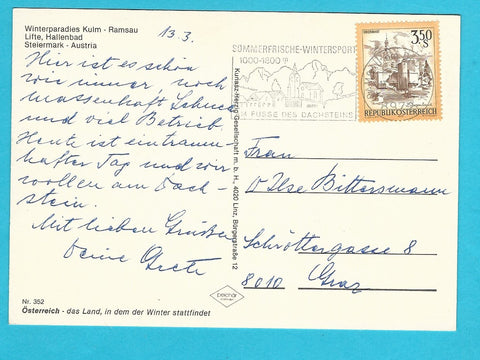 Winterparadies Kulm - Ramsau
Lifte, Hallenbad
Steiermark - Austria
13.3.
Hier ist es schön
wie immer, noch
massenhaft Schnee
und viel Betrieb.
Heute ist ein traum-
hafter Tag und wir
wollen am Dach-
stein.
Mit lieben Grüßen
Deine Grete
Nr. 352
Österreich - das Land, in dem der Winter stattfindet
Kunstanz-Herzig-Gesellschaft m. b. H., 4020 Linz, Bürgerstraße 12
SOMMERFRISCHE-WINTERSPORT
1000-1800
AM FUSSE DES DACHSTEINS
3.50
S
REPUBLIK ÖSTERREICH
Frau
Ilse Bittersmann
Schröttergasse 8
8010 Graz